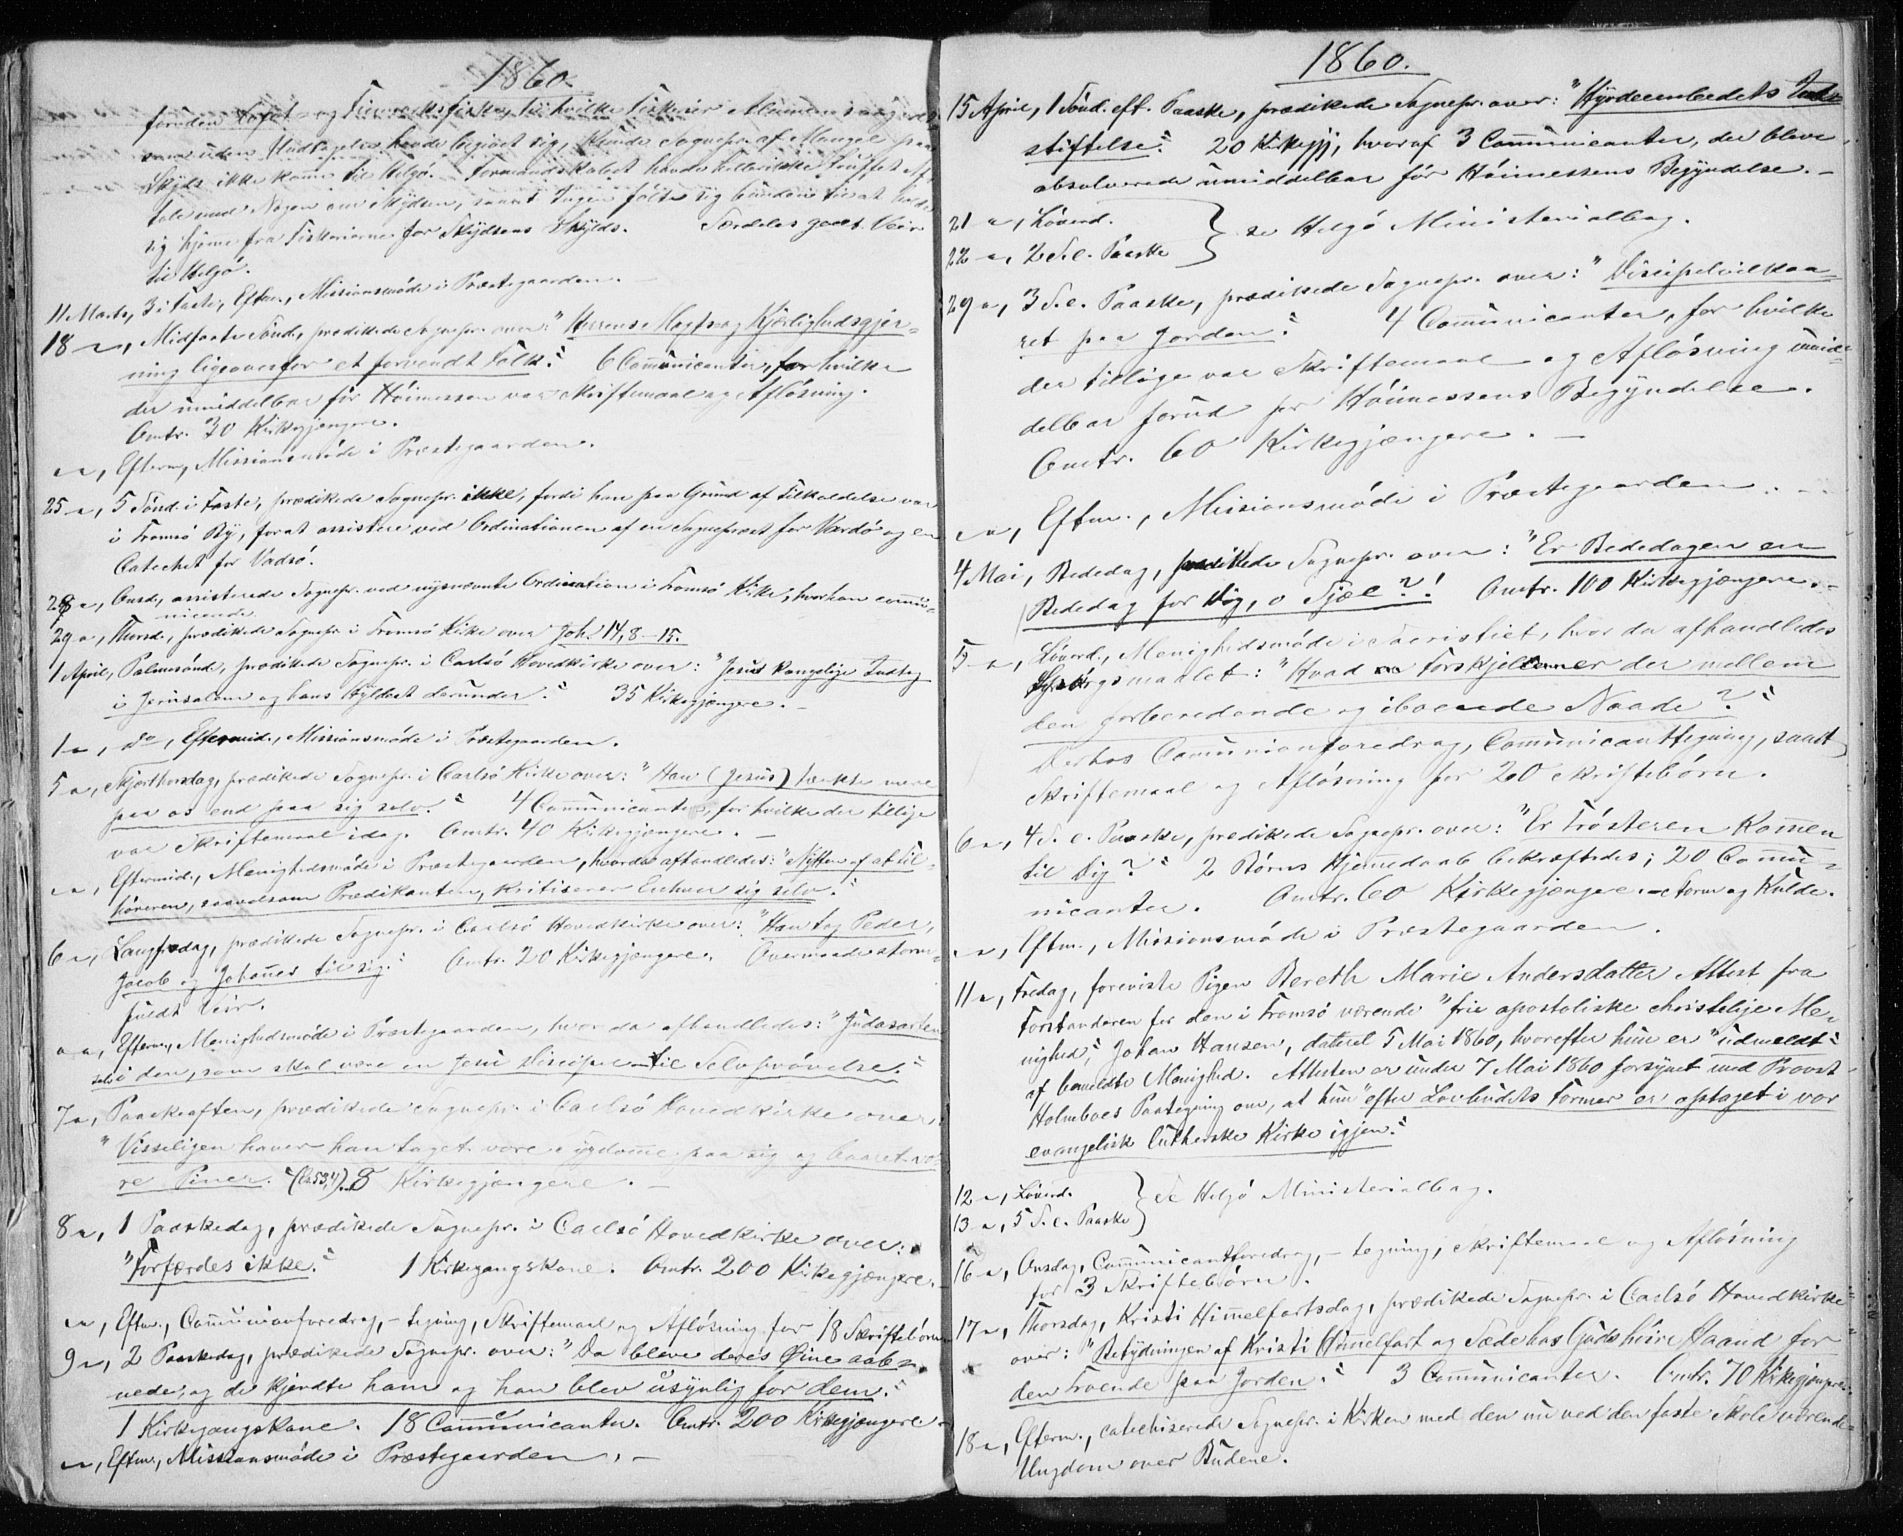 1860.
foruden Lofot- og Finmarksfiske, til hvilke Fiskerier
som uden Undtagelse havde begivet sig, kunde Sognepr. af Mangel paa
Skyds ikke komme til Helgö. Formandskabet havde heller ikke truffet Af-
tale med Nogen om Skydsen, saant Ingen fölte sig bunden til at holde
sig hjemme fra Fiskerierne for Skydsens Skyld. Særdeles godt Veir
til Helgö.
11 Marts, 3 i Faste, Eftm., Missionsmöde i Præstegaarden. -
18 -"-, Midfaste Sönd., prædikede Sognepr. over: "Herrens Magts og Kjærlighedsgjer-
ning ligeoverfor et forvendt Folk". 6 Communicanter, for hvilke
der umiddelbar för Höimessen var Skriftemaal og Aflösning.
Omtr. 30 Kirkegjængere.
-"-, Efterm., Missionsmöde i Præstegaarden.
25 -"-, 5 Sönd. i Faste, prædikede Sognepr. ikke, fordi han paa Grund af Tilkaldelse var
i Tromsö By, for at assistere ved Ordinationen af en Sognepræst for Vardö og en
Catechet for Vadsö.
28 -"-, Onsd., assisterede Sognepr. ved nysnævnte Ordination i Tromsö Kirke, hvor han commu-
nicerede
29 -"-, Thorsd., prædikede Sognepr. i Tromsö Kirke over Joh. 14, 8-15.
1 April, Palmesönd., prædikede Sognepr. i Carlsö Hovedkirke over: "Jesus kongelige Indtog
i Jerusalem og hans Hyldest derunder". 35 Kirkegjængere. -
1 -"-, do, Eftermid., Missionsmöde i Præstegaarden.
5 -"-, Skjærthorsdag, prædikede Sognepr. i Carlsö Kirke over: "Han (Jesus) tænkte mere
paa os end paa sig selv." 4 Communicanter, for hvilke der tillige
var Skriftemaal idag. Omtr. 40 Kirkegjængere. -
-"-, Eftermid., Menighedsmöde i Præstegaarden, hvor da afhandledes: "Nytten af at Til-
höreren, saavelsom Prædikanten, kritiserer Enhver sig selv."
6 -"-, Langfredag, prædikede Sognepr. i Carlsö Hovedkirke over: "Han tog Peder,
Jacob og Johannes til sig." Omtr. 20 Kirkegjængere. Overmaade storm-
fuldt Veir.
-"-, Efterm., Menighedsmöde i Præstegaarden, hvor da afhandledes: "Judasarten
selv i den, som skal være en Jesu Discipel - til Selvprövelse."
7 -"-, Paaskeaften, prædikede Sognepr. i Carlsö Hovedkirke over:
"Visseligen haver han taget vore Sygdomme paa sig og baaret vo-
re Piner. (Es 53,4). 8 Kirkegjængere. -
8 -"-, 1 Paaskedag, prædikede Sognepr. i Carlsö Hovedkirke over:
"Forfærdes ikke." 1 Kirkegangskone. Omtr. 200 Kirkegjængere. -
-"-, Eftm., Communionforedrag, - tegning, Skriftemaal og Aflösning for 18 Skriftebörn
9 -"-, 2 Paaskedag, prædikede Sognepr. over: "Da bleve deres Öine aab-
nede, og de kjendte ham og han blev usynlig for dem."
1 Kirkegangskone. 18 Communicanter. Omtr. 200 Kirkegjængere -
-"-, Eftm., Missionsmöde i Præstegaarden. -
1860.
15 April, 1 Sönd. eft. Paaske, prædikede Sognepr. over: "Hyrdeembedets Ind-
stiftelse". 20 Kirkgjg, hvoraf 3 Communicanter, der bleve
absolverede umiddelbar för Höimessens Begyndelse. -
21 -"-, Löverd.
22 -"-, 2 S. e. Paaske } se Helgö Ministerialbog.
29 -"-, 3 S. e. Paaske, prædikede Sognepr. over: "Discipelvilkaa-
ret paa Jorden". 4 Communicanter, for hvilke
der tillige var Skriftemaal og Aflösning umid-
delbar forud for Höimessens Begyndelse.
Omtr. 60 Kirkegjængere. -
-"-, Eftm., Missionsmöde i Præstegaarden. -
4 Mai, Bededag, prædikede Sognepr. over: "Er Bededagen en
Bededag for Dig, o Sjæl?"! Omtr. 100 Kirkegjængere. -
5 -"-, Löverd., Menighedsmöde i Sacristiet, hvor da afhandledes
Spörgsmaalet: "Hvad Forskjel er der mellem
den forberedende og iboende Naade?"
Derhos Communionforedrag, Communicanttegning, samt
Skriftemaal og Aflösning for 20 Skriftebörn.
6 -"-, 4 S. e. Paaske, prædikede Sognepr. over: "Er Trösteren kommen
til Dig?" 2 Börns Hjemmedaab bekræftedes; 20 Commu-
nicanter. Omtr. 60 Kirkegjængere. - Storm og Kulde.
-"-, Eftm., Missionsmöde i Præstegaarden.
11 -"-, Fredag, foreviste Pigen Bereth Marie Andersdatter Attest fra
Forstanderen for den i Tromsö værende "frie apostoliske christelige Me-
nighed", Johan Hansen, dateret 5 Mai 1860, hvorefter hun er "udmeldt"
af bemeldte Menighed. Attesten er under 7 Mai 1860 forsynet med Provst
Holmboes Paategning om, at hun "efter Lovbudets Former er optaget i vor
evangelisk lutherske Kirke igjen."
12 -"-, Löverd.
13 -"-, 5 S. e. Paaske } se Helgö Ministerialbog.
16 -"-, Onsdag, Communicantforedrag, - tegning, Skriftemaal og Aflösning
for 3 Skriftebörn.
17 -"-, Thorsdag, Kristi Himmelfartsdag, prædikede Sognepr. i Carlsö Hovedkirke
over: "Betydningen af Kristi Himmelfart og Sæde hos Guds höire Haand for
den Troende paa Jorden." 3 Communicanter. Omtr. 70 Kirkegjængere.
18 -"-, Efterm., catechiserede Sognepr. i Kirken med den nu ved den faste Skole værende
Ungdom over Budene.